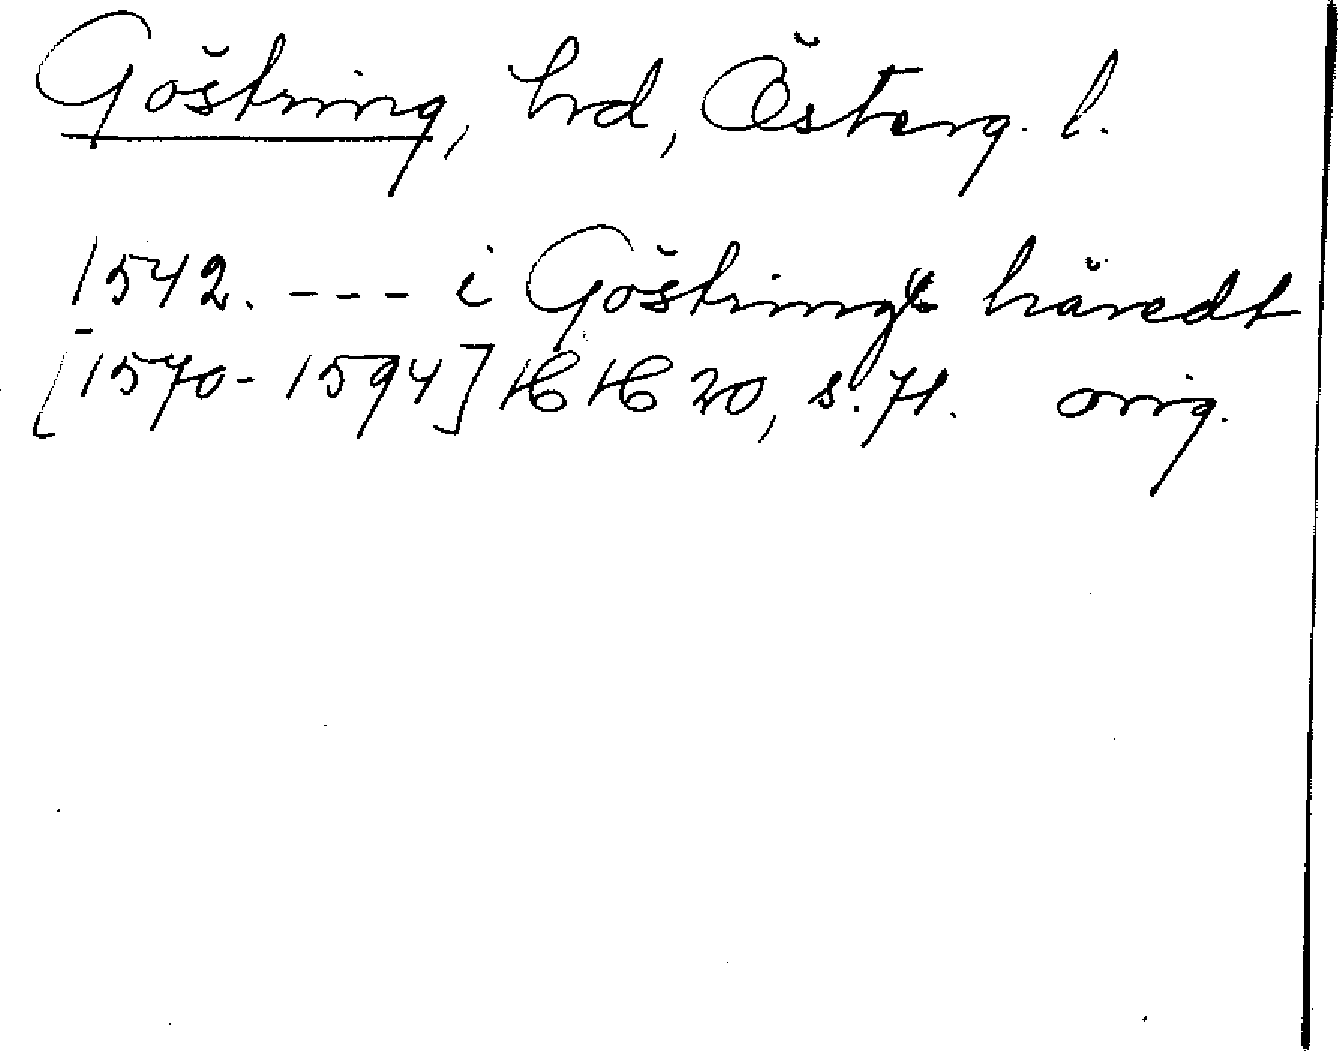 Göstring, hrd, Österg. l.
1542. --- i Göstringx häredt
[1570-1594] HH 20, s. 71. orig.